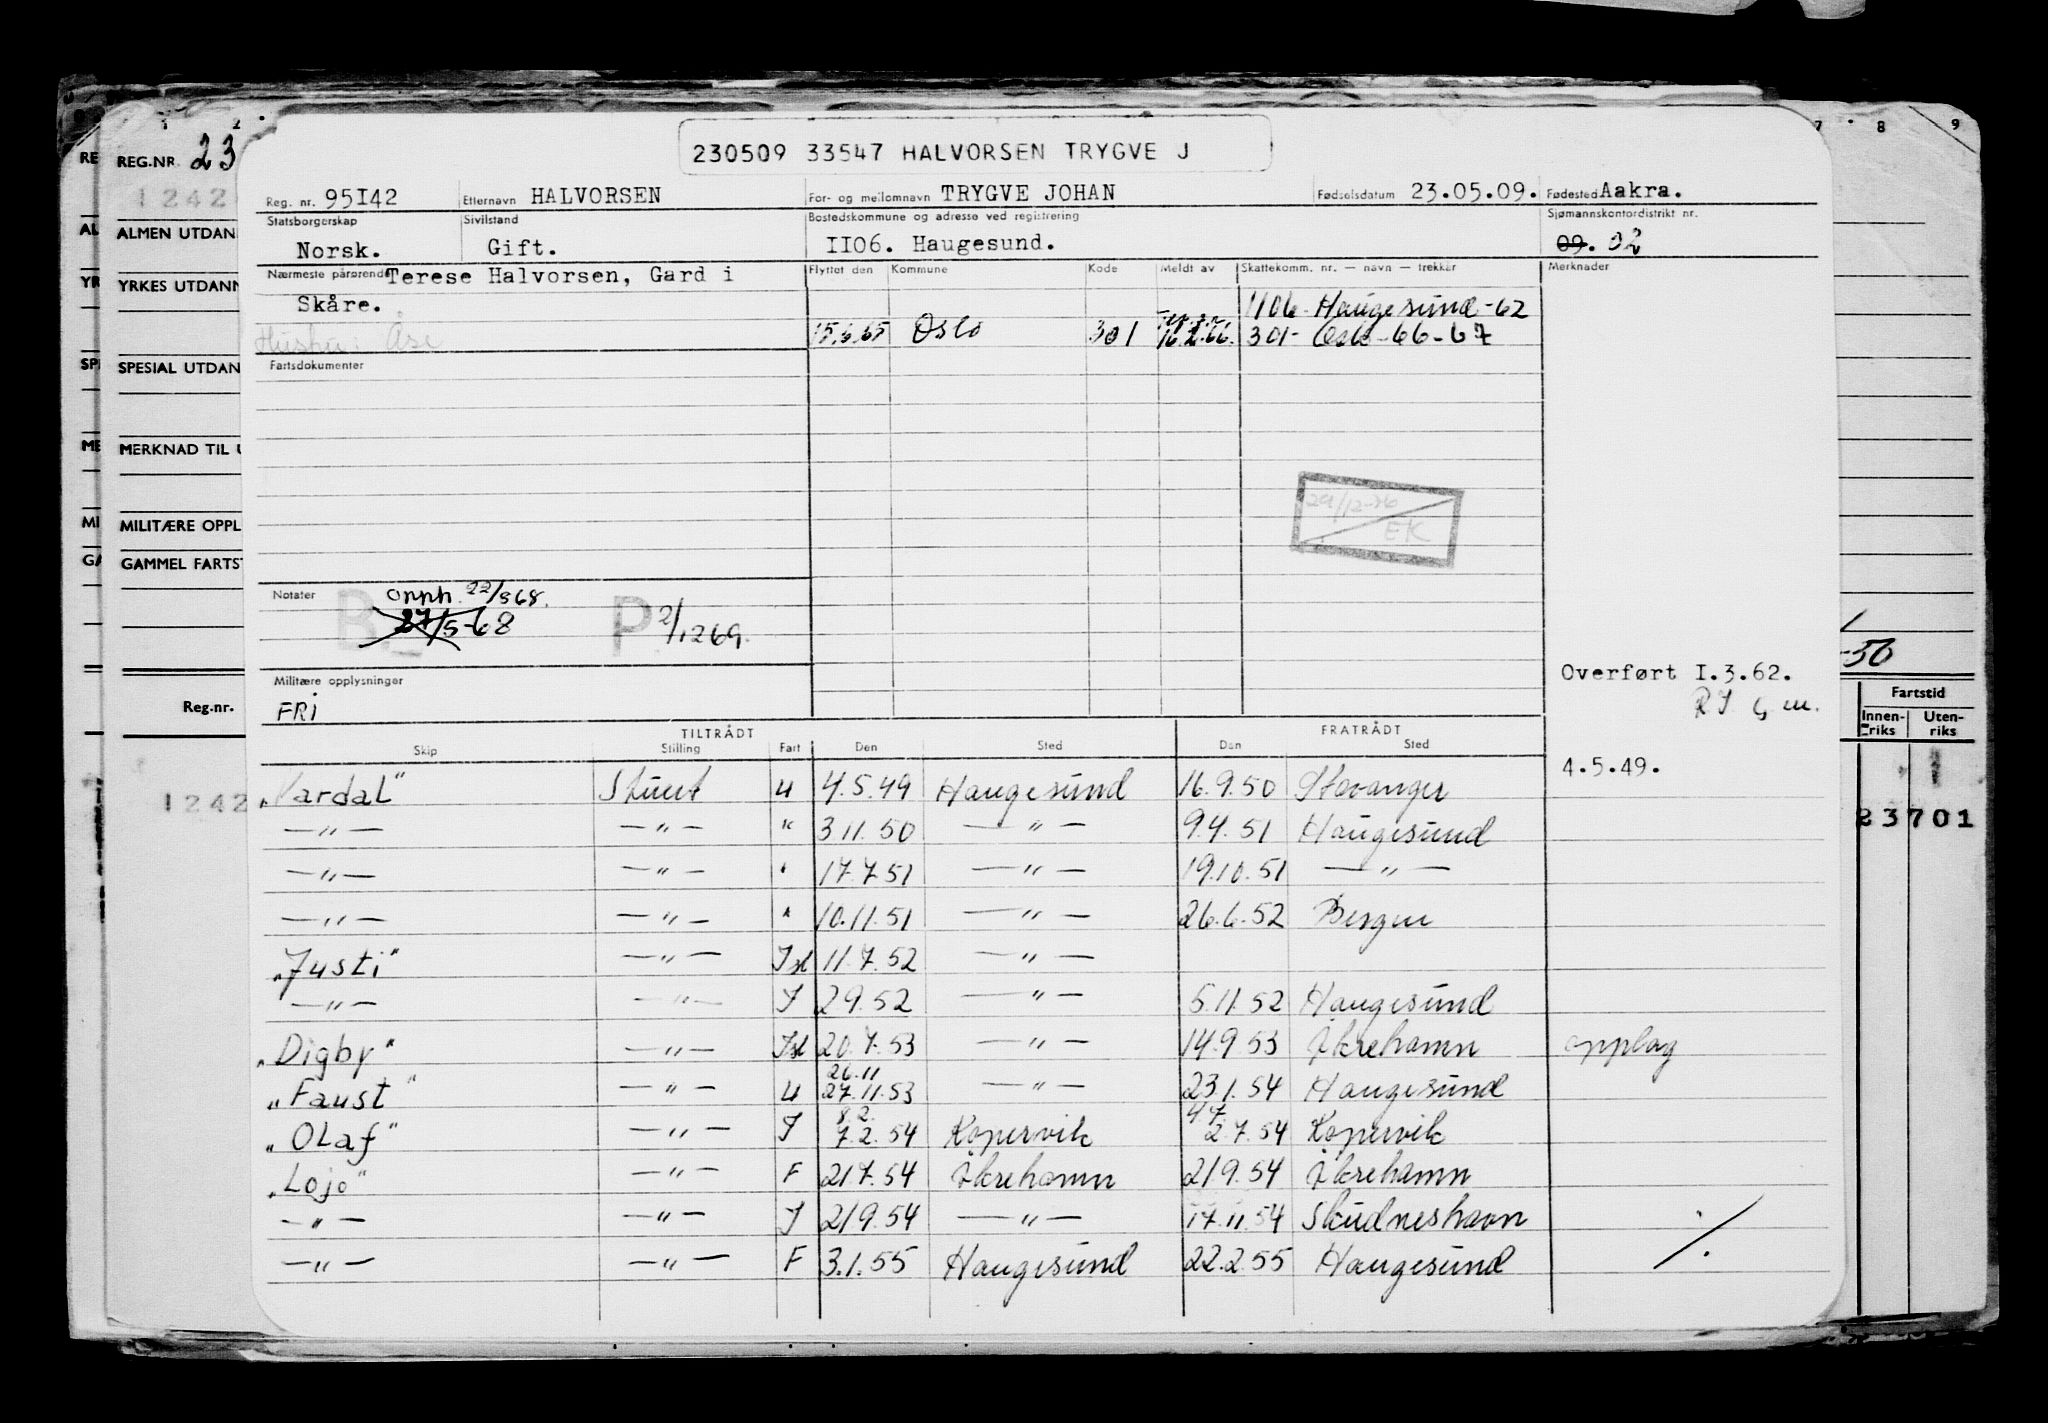 230509 33547 HALVORSEN TRYGVE J
REG.NR. 23
Reg. nr. 95I42 Etternavn HALVORSEN For- og mellomnavn TRYGVE JOHAN Fødselsdatum 23.05.09. Fødested Aakra.
Statsborgerskap Sivilstand Bostedskommune og adresse ved registrering Sjømannskontordistrikt nr.
Norsk. Gift. II06. Haugesund. 09. 02
Nærmeste pårørende Terese Halvorsen, Gard i Flyttet den Kommune Kode Meldt av Skattekomm. nr. — navn — trekkår Merknader
Skåre. 1106 Haugesund-62
Hustru: Åse 15.6.65 Oslo 301 16.2.66. 301- Oslo-66-67
Fartsdokumenter
29/12-76
EK
Notater Opph. 22/568.
B 27/5-68 P 2/1269.
Militære opplysninger
FRi
Overført I.3.62.
TILTRÅDT FRATRÅDT
Skip Stilling Fart Den Sted Den Sted
4.5.49.
"Vardal" Stuert U 4.5.49 Haugesund 16.9.50 Stavanger
—"— —"— " 3.11.50 —"— 9.4.51 Haugesund
—"— —"— " 17.7.51 —"— 19.10.51 —"—
—"— —"— " 10.11.51 —"— 26.6.52 Bergen
"Justi" —"— Isl 11.7.52 —"—
—"— —"— I 2.9.52 —"— 5.11.52 Haugesund
"Digby" —"— Isl 20.7.53 —"— 14.9.53 Åkrehamn opplag
26.11
"Faust" —"— U 27.11.53 —"— 23.1.54 Haugesund
8.2. 4.7.
"OLaf" —"— I 7.2.54 Kopervik 2.7.54 Kopervik
"Lojo" —"— F 21.7.54 Åkrehamn 21.9.54 Åkrehamn
—"— —"— I 21.9.54 —"— 17.11.54 Skudneshavn
—"— —"— F 3.1.55 Haugesund 22.2.55 Haugesund ./.
RE
1242
AL ALMEN UTDAN
YR YRKES UTDANN
SPI SPESIAL UTDAN
ME MERKNAD TIL U
MI MILITÆRE OPPL
GA GAMMEL FARTST
Reg.nr.
1242
7 8 9
-50
Fartstid
Innen- Uten-
riks riks
23701